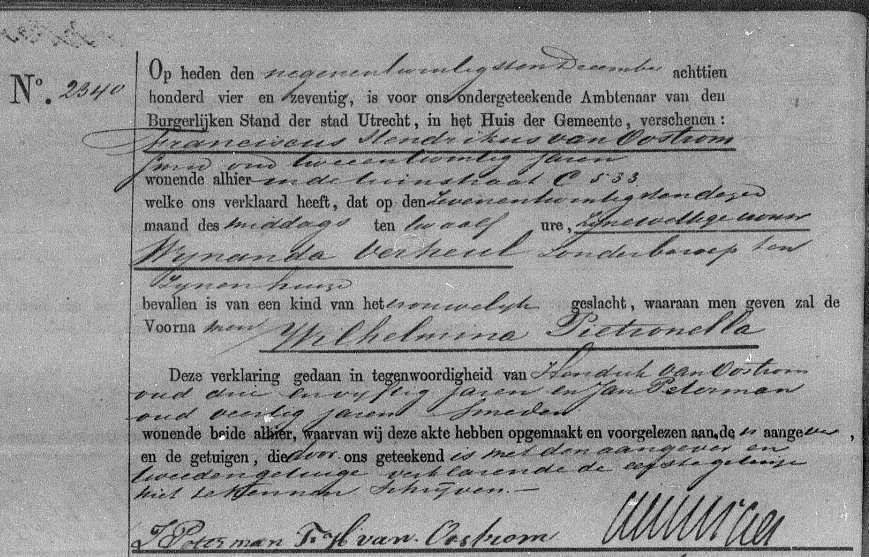 No. 2340
Op heden den negenentwintigsten December achttien
honderd vier en zeventig, is voor ons ondergeteekende Ambtenaar van den
Burgerlijken Stand der stad Utrecht, in het Huis der Gemeente, verschenen:
Franciscus Hendrikus van Oostrom
smid oud tweeentwintig jaren
wonende alhier in de tuinstraat C 533
welke ons verklaard heeft, dat op den zevenentwintigsten dezer
maand des middags ten twaalf ure, zyne wettige vrouw
Wynanda Verheul zonder beroep ten
zynen huize
bevallen is van een kind van het vrouwelyk geslacht, waaraan men geven zal de
Voornamen Wilhelmina Pietronella
Deze verklaring gedaan in tegenwoordigheid van Hendrik van Oostrom
oud drie en vyftig jaren en Jan Peterman
oud veertig jaren smeden
wonende beide alhier, waarvan wij deze akte hebben opgemaakt en voorgelezen aan de aangever,
en de getuigen, die door ons geteekend is met den aangever en
tweeden getuige verklarende de eerste getuige
niet te kunnen schryven.—
J Peterman F. H van Oostrom